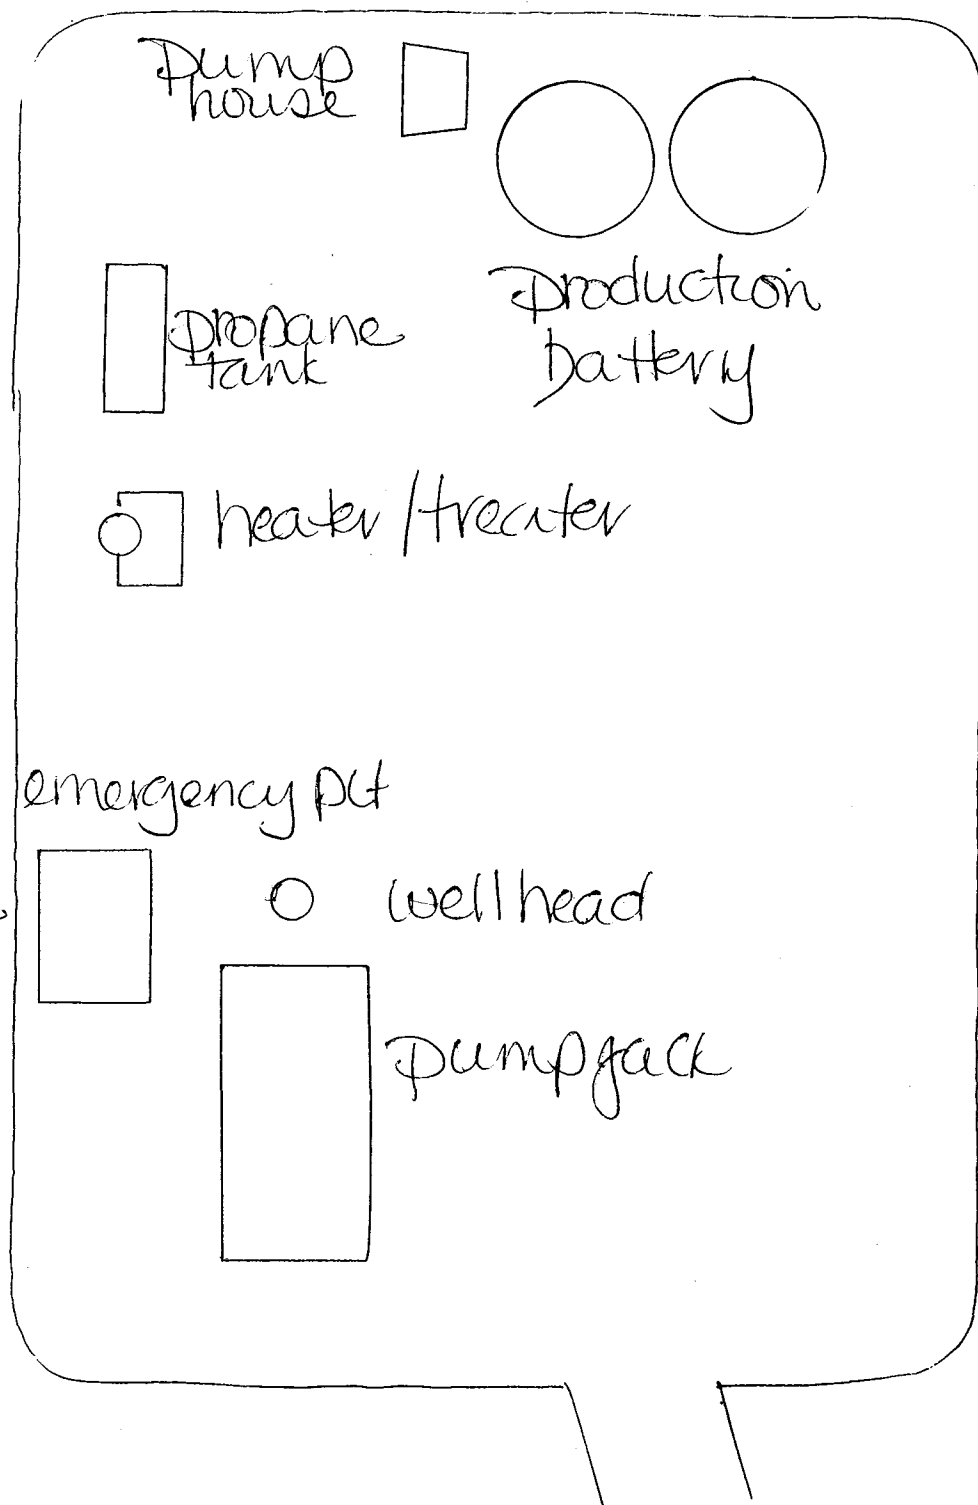 Pump
house
production
battery
propane
tank
heater/treater
emergency pit
wellhead
Pumpjack